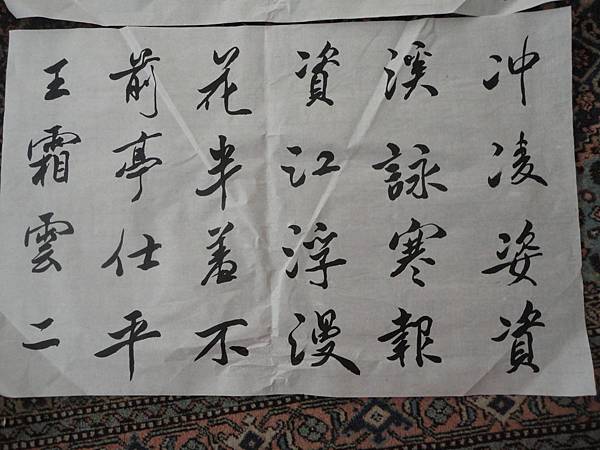 冲凌姿資
溪詠寒報
資江浮漫
花半羞不
前亭仕平
王霜雲二